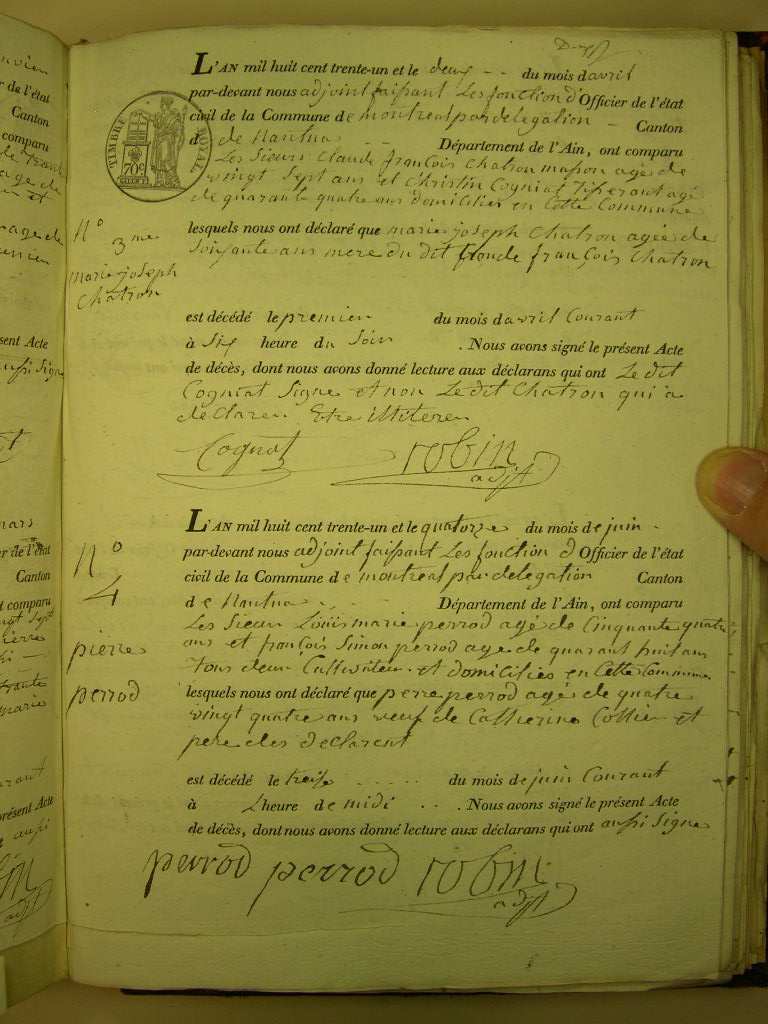 L'AN mil huit cent trente-un et le deux du mois davril
par-devant nous adjoint faissant Les fonction d'Officier de l'état
civil de la Commune de montreal par delegation Canton
de de Nantua Département de l'Ain, ont comparu
Les Sieurs Claude françois Chatron masson agé de
vingt Sept ans et Christin Cogniat Tisserant agé
de quarante quatre ans domicilier en Cette Commune
lesquels nous ont déclaré que marie joseph Chatron agée de
Soixante ans mere du dit Claude françois Chatron
est décédé le premier du mois davril Courant
à Six heure du Soir . Nous avons signé le présent Acte
de décès, dont nous avons donné lecture aux déclarans qui ont Le dit
Cogniat Signe et non Le dit Chatron qui a
declarer Etre illiterer
Cogniat robin
adjt
TIMBRE ROYAL
70c
N° 3me
marie joseph
Chatron
L'AN mil huit cent trente-un et le quatorze du mois de juin
par-devant nous adjoint faissant Les fonction d Officier de l'état
civil de la Commune de montreal par delegation Canton
de Nantua Département de l'Ain, ont comparu
Les Sieur Louis marie perrod agé de Cinquante quatre
ans et françois Simon perrod age de quarant huit ans
tous deux Cultivateur et domiciliés en Cette Commune
lesquels nous ont déclaré que perre perrod agé de quatre
vingt quatre ans veuf de Catherine Collier et
pere des declarent
est décédé le treise du mois de juin Courant
à Lheure de midi . Nous avons signé le présent Acte
de décès, dont nous avons donné lecture aux déclarans qui ont aussi Signe
perrod perrod robin
adjt
N°
4
pierre
perrod